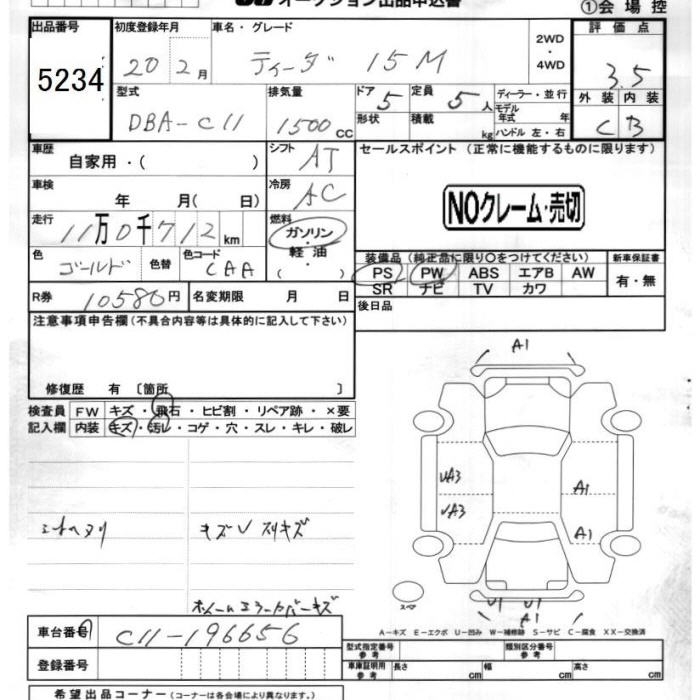 オークション出品申込書
①会場控
出品番号 初度登録年月 車名・グレード 評価点
5234 20 2月 ティーダ 15M 2WD・4WD 3.5
外装 内装
C B
型式 排気量 ドア 定員 ディーラー・並行
DBA-C11 1500cc 5 5人 モデル年式 年
形状 積載 kg ハンドル 左・右
車歴 シフト セールスポイント (正常に機能するものに限ります)
自家用・( ) AT
車検 冷房
年 月( 日) AC
NOクレーム・売切
走行 燃料
11万0千712km ガソリン・軽油( )
色 色替 色コード
ゴールド CAA
装備品(純正品に限り○をつけてください) 新車保証書
PS PW ABS エアB AW 有・無
SR ナビ TV カワ
R券 10580円 名変期限 月 日
後日品
注意事項申告欄(不具合内容等は具体的に記入して下さい)
修復歴 有〔箇所 〕
検査員記入欄 FW キズ・飛石・ヒビ割・リペア跡・×要
内装 キズ・汚レ・コゲ・穴・スレ・キレ・破レ
A1
UA3
A1
UA3
A1
キズU スリキズ
U1 U1
A1
スペア
A-キズ E-エクボ U-凹み W-補修跡 S-サビ C-腐食 XX-交換済
車台番号 C11-196656
型式指定番号 参考 類別区分番号 参考
登録番号
車庫証明用 参考 長さ cm 幅 cm 高さ cm
希望出品コーナー(コーナーは各会場により異なります。)